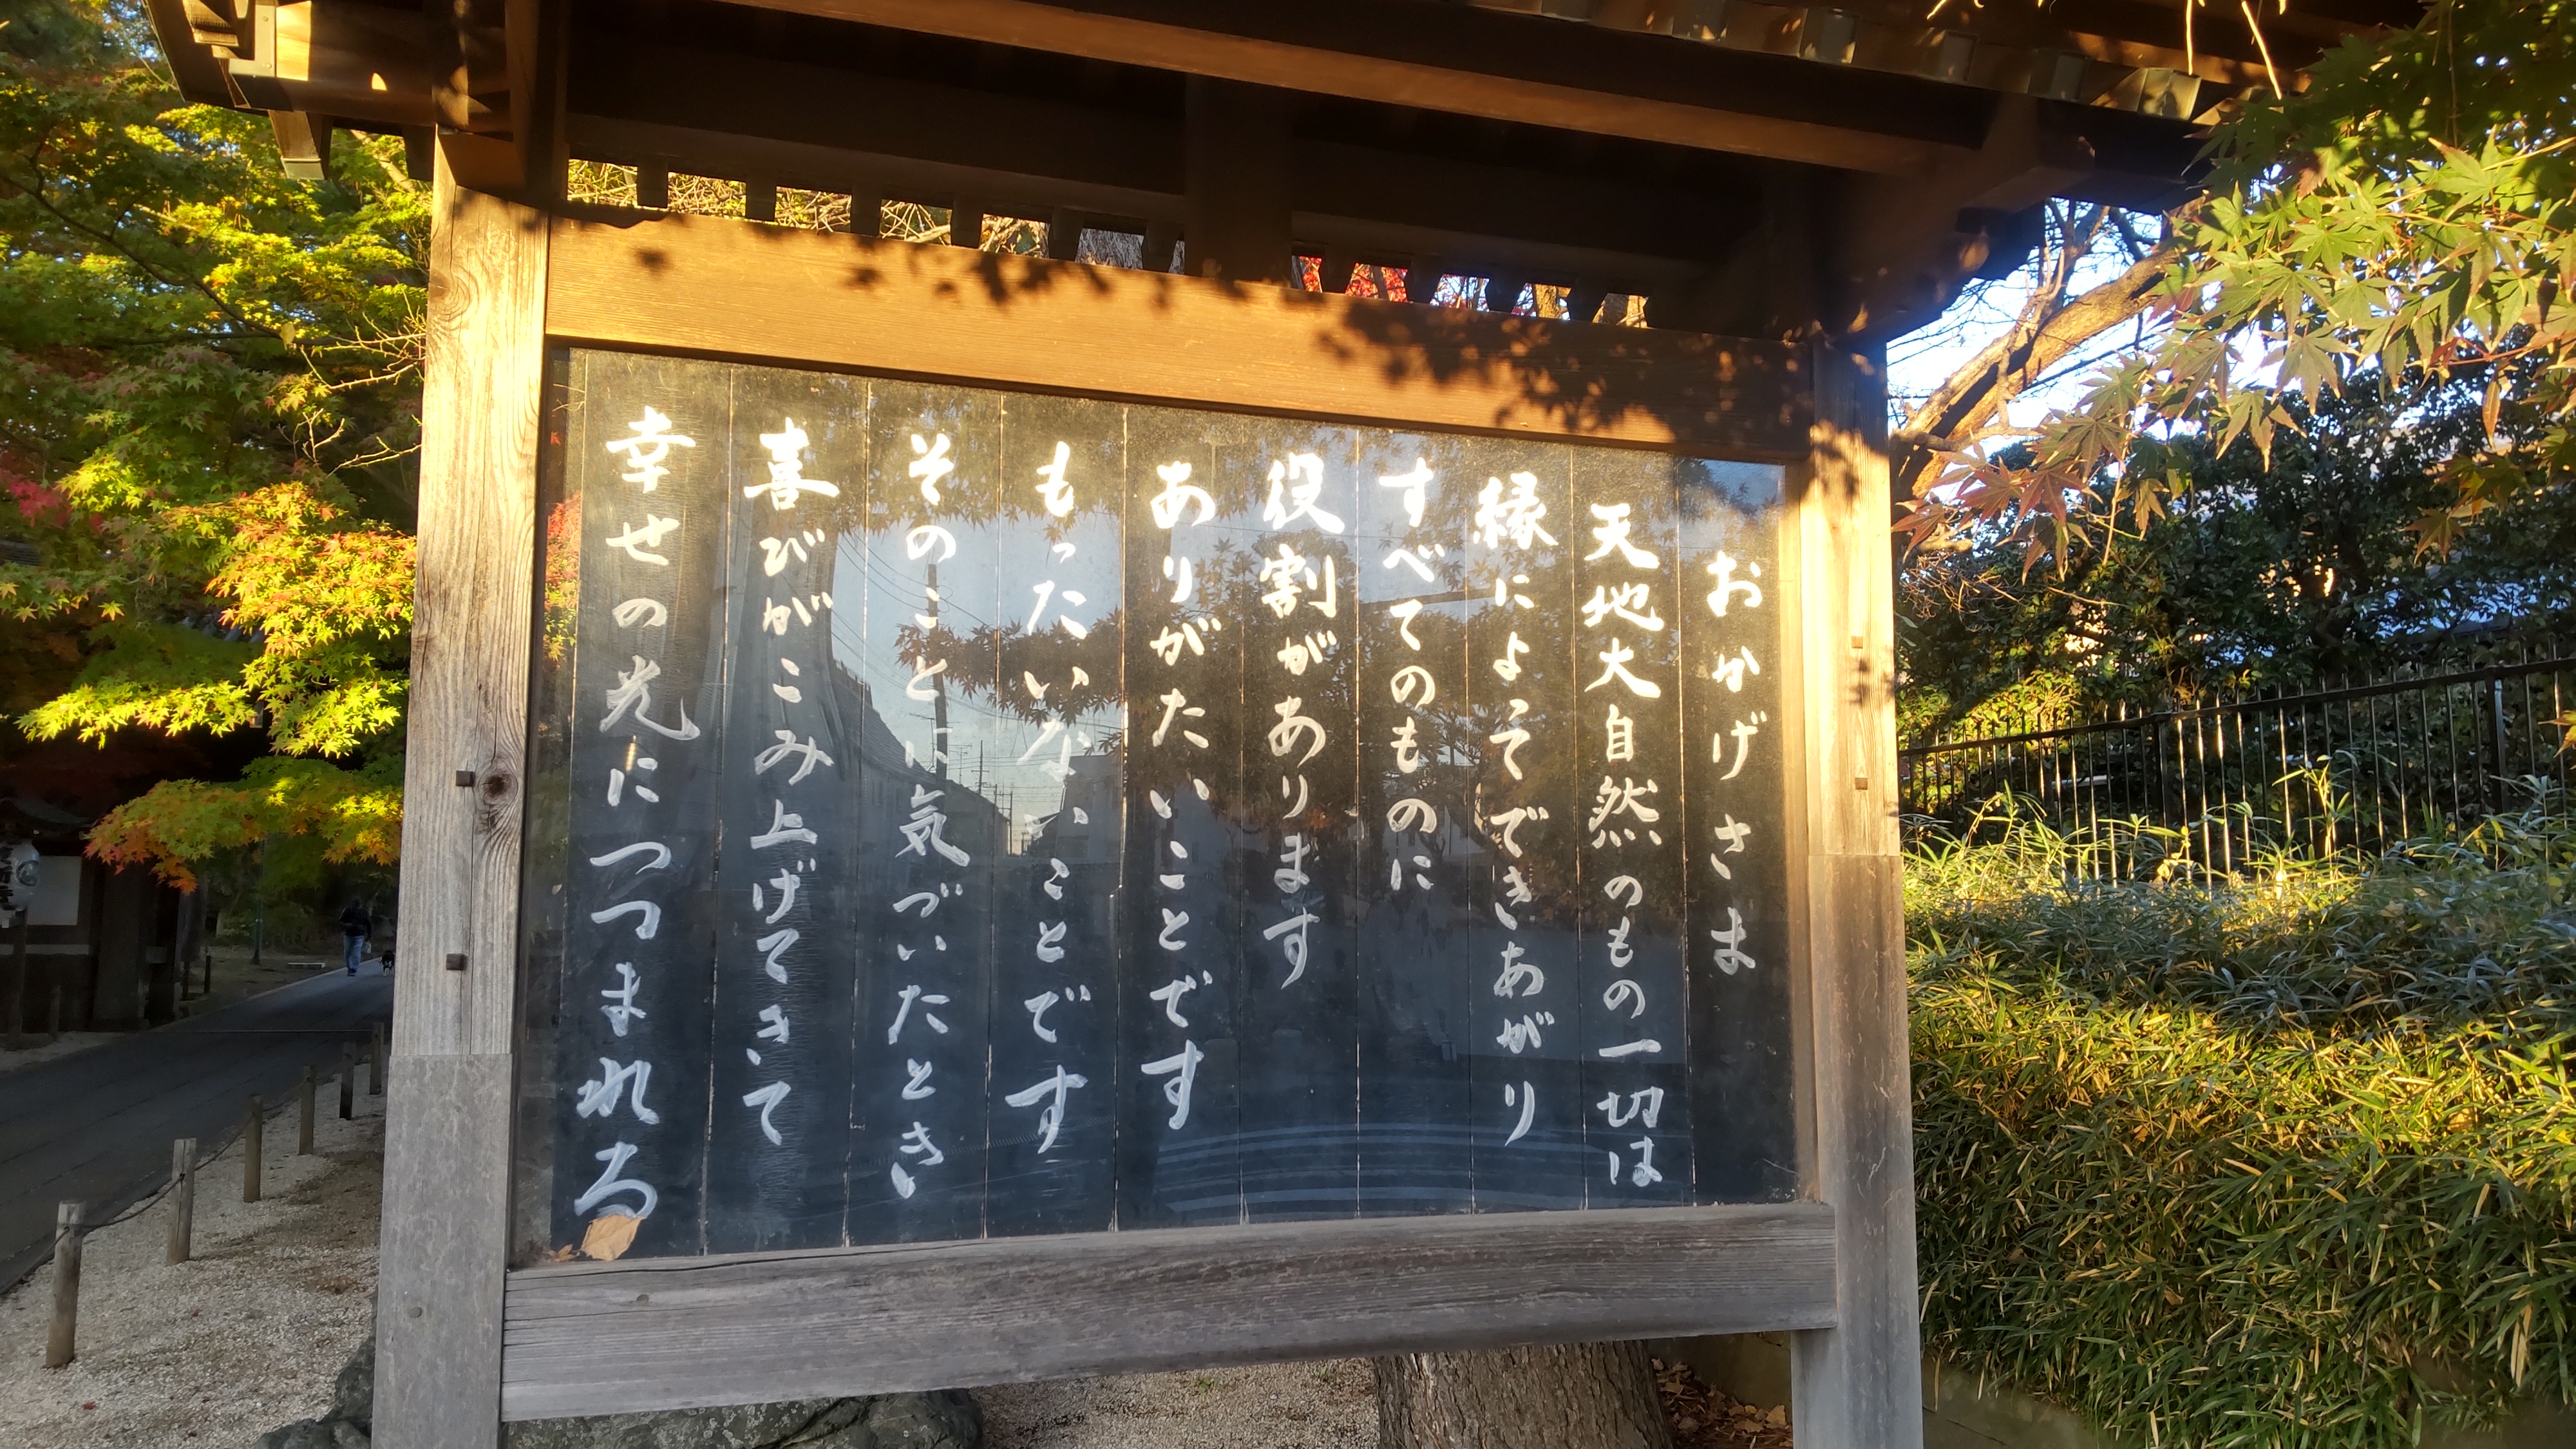 おかげさま
天地大自然のもの一切は
縁によってできあがり
すべてのものに
役割があります
ありがたいことです
もったいないことです
そのことに気づいたとき
喜びがこみ上げてきて
幸せの光につつまれる